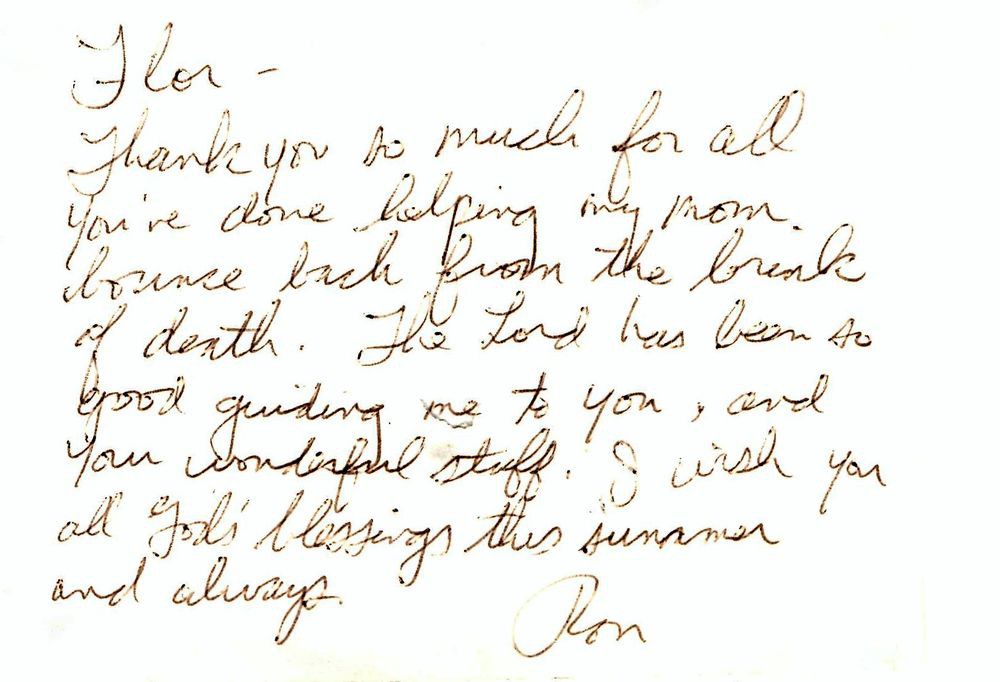 Flor -
Thank you so much for all
you've done helping my mom
bounce back from the brink
of death. The Lord has been so
good guiding me to you, and
your wonderful staff. I wish you
all God's blessings this summer
and always.
Ron